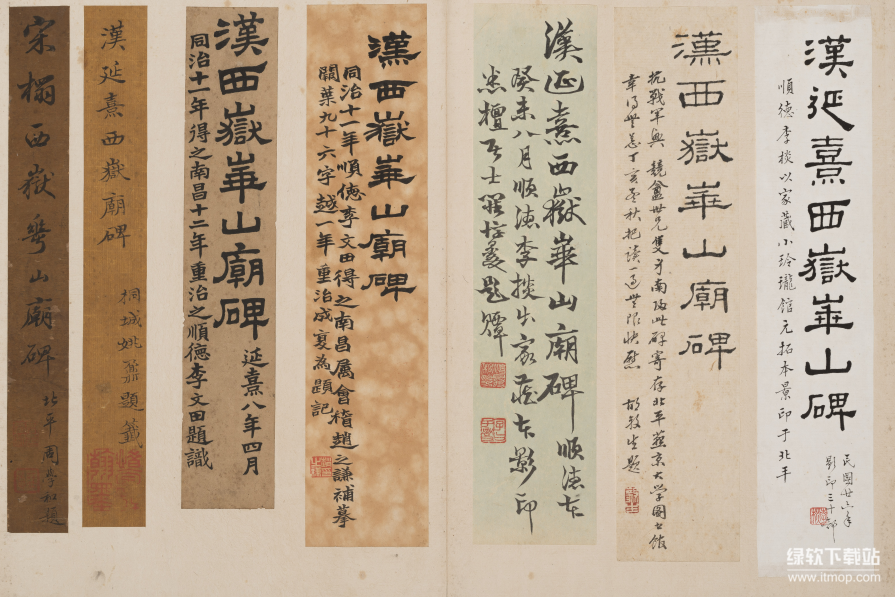 漢延熹西嶽崋山碑
順德李棪以家藏小玲瓏館元拓本景印于北平
民國廿六年
影印三十部
漢西嶽崋山廟碑
抗戰軍興 競盦世兄雙身南改此碑寄存北平燕京大學圖書館
幸得無恙丁亥孟秋把讀一過無限快慰 胡毅生題
漢延熹西嶽崋山廟碑 順德本
癸未八月順德李棪出家藏本影印
漢西嶽崋山廟碑
同治十一年順德李文田得之南昌属會稽趙之謙補摹
闕葉九十六字越一年重治成夏為題記
漢西嶽崋山廟碑 延熹八年四月
同治十一年得之南昌十二年重治之順德李文田題識
漢延熹西嶽廟碑
桐城姚鼐題籤
宋搨西嶽華山廟碑
北平周肇祥題
绿软下载站
www.itmop.com